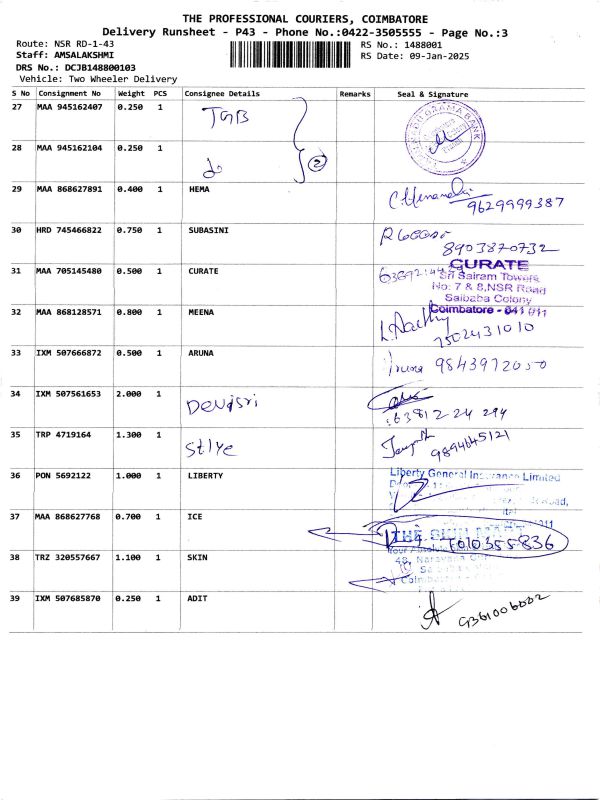 THE PROFESSIONAL COURIERS, COIMBATORE
Delivery Runsheet - P43 - Phone No.:0422-3505555 - Page No.:3
Route: NSR RD-1-43
RS No.: 1488001
Staff: AMSALAKSHMI
RS Date: 09-Jan-2025
DRS No.: DCJB148800103
Vehicle: Two Wheeler Delivery
S No Consignment No Weight PCS Consignee Details Remarks Seal & Signature
27 MAA 945162407 0.250 1 TGB
28 MAA 945162104 0.250 1 do 2
29 MAA 868627891 0.400 1 HEMA
9629999387
30 HRD 745466822 0.750 1 SUBASINI
8903870732
31 MAA 705145480 0.500 1 CURATE
CURATE
Sri Sairam Towers
No: 7 & 8,NSR Road
Saibaba Colony
Coimbatore - 641 011
32 MAA 868128571 0.800 1 MEENA
7502431010
33 IXM 507666872 0.500 1 ARUNA
Aruna 9843972050
34 IXM 507561653 2.000 1 Devisri
63812 24 294
35 TRP 4719164 1.300 1 Stlye
9894645121
36 PON 5692122 1.000 1 LIBERTY
Liberty General Insurance Limited
37 MAA 868627768 0.700 1 ICE
THE SKIN
7010355836
38 TRZ 320557667 1.100 1 SKIN
39 IXM 507685870 0.250 1 ADIT
9361006002